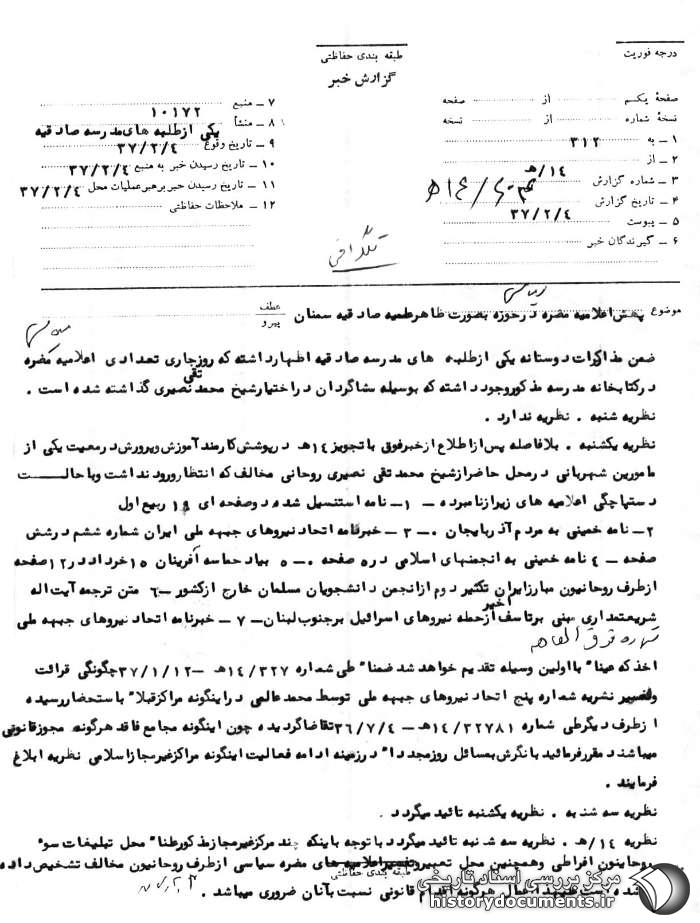 درجه فوریت
طبقه بندی حفاظتی
گزارش خبر
صفحهٔ یکم از صفحه
نسخهٔ شماره از نسخه
۱ – به ۳۱۲
۲ – از
۳ – شماره گزارش ۱۴/هـ
۴ – تاریخ گزارش ۳۷/۲/۴
۵ – پیوست
۶ – گیرندگان خبر
۷ – منبع ۱۰۱۷۲
۸ – منشأ یکی ازطلبه های مدرسه صادقیه
۹ – تاریخ وقوع ۳۷/۲/۴
۱۰ – تاریخ رسیدن خبر به منبع ۳۷/۲/۴
۱۱ – تاریخ رسیدن خبر برهبر عملیات محل ۳۷/۲/۴
۱۲ – ملاحظات حفاظتی
تلگرافی
موضوع پخش اعلامیه مضره درحوزه بصورت ظاهر علمیه صادقیه سمنان
عطف
پیرو
ضمن مذاکرات دوستانه یکی ازطلبه های مدرسه صادقیه اظهارداشته که روزجاری تعدادی اعلامیه مضره
درکتابخانه مدرسه مذکوروجودداشته که بوسیله شاگردان دراختیارشیخ محمد تقی نصیری گذاشته شده است .
نظریه شنبه . نظریه ندارد .
نظریه یکشنبه . بلافاصله پس ازاطلاع ازخبرفوق باتجویز ۱۴هـ درپوشش کارمند آموزش وپرورش درمعیت یکی از
مامورین شهربانی درمحل حاضرازشیخ محمد تقی نصیری روحانی مخالف که انتظارورود نداشت وباحالت
دستپاچگی اعلامیه های زیرازنامبرده – ۱– نامه استنسیل شده دوصفحه ای ۱۹ ربیع اول
۲– نامه خمینی به مردم آذربایجان – ۳ – خبرنامه اتحاد نیروهای جبهه ملی ایران شماره ششم درشش
صفحه – ۴ نامه خمینی به انجمنهای اسلامی در ۵ صفحه – ۵ بیاد حماسه آفرینان ۱۵ خرداد در ۱۲ صفحه
ازطرف روحانیون مبارزایران تکثیر دوم ازانجمن دانشجویان مسلمان خارج ازکشور – ۶ متن ترجمه آیت اله
شریعتمداری مبنی برتاسف ازخبر حمله نیروهای اسرائیل برجنوب لبنان – ۷ – خبرنامه اتحاد نیروهای جبهه ملی
شماره فوق العاده
اخذ که عیناً بااولین وسیله تقدیم خواهد شد ضمناً طی شماره ۱۴/۳۲۷هـ – ۳۷/۱/۱۲ چگونگی قرائت
وتفسیر نشریه شماره پنج اتحاد نیروهای جبهه ملی توسط محمد عالمی دراینگونه مراکز قبلاً باستحضاررسیده
ازطرف دیگرطی شماره ۱۴/۲۲۷۸۱هـ – ۳۶/۷/۴ تقاضاگردیده چون اینگونه مجامع فاقد هرگونه مجوزقانونی
میباشند مقررفرمائید بانگرش بمسائل روزمجدداً درزمینه ادامه فعالیت اینگونه مراکزغیرمجازاسلامی نظریه ابلاغ
فرمایند .
نظریه سه شنبه . نظریه یکشنبه تائید میگردد .
نظریه ۱۴/هـ . نظریه سه شنبه تائید میگردد باتوجه باینکه چند مرکزغیرمجازمذکورظناً محل تبلیغات سوء
روحانیون افراطی وهمچنین محل تعبیر وتفسیراعلامیه های مضره سیاسی ازطرف روحانیون مخالف تشخیص داده
شده است اعمال هرگونه اقدام قانونی نسبت بآنان ضروری میباشد .
طبقه بندی حفاظتی
مرکز بررسی اسناد تاریخی
historydocuments.ir